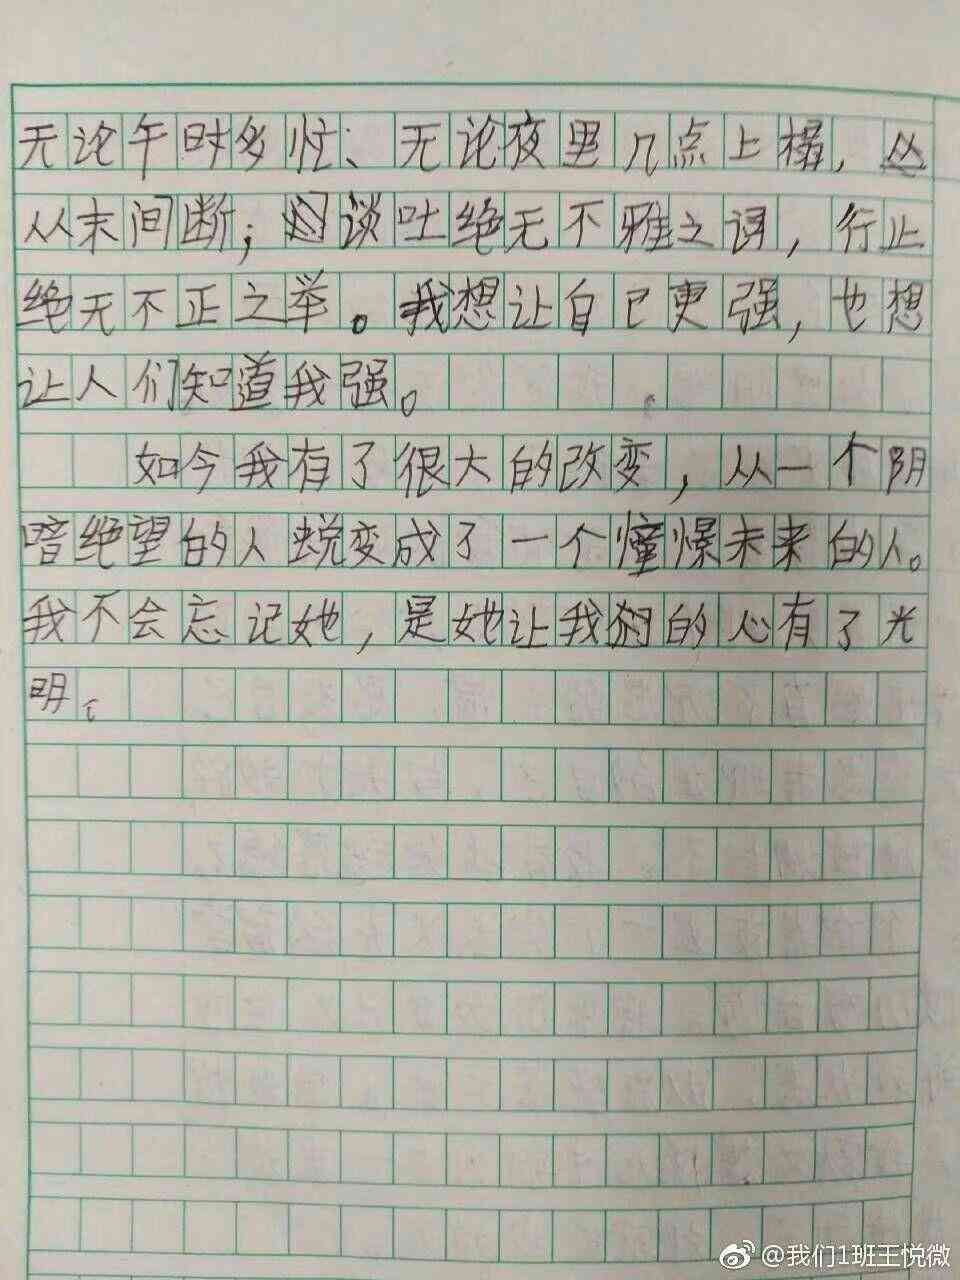 无论午时多忙、无论夜里几点上榻，
从未间断；谈吐绝无不雅之词，行止
绝无不正之举。我想让自己更强，也想
让人们知道我强。
如今我有了很大的改变，从一个阴
暗绝望的人蜕变成了一个憧憬未来的人。
我不会忘记她，是她让我们的心有了光
明。
@我们1班王悦微